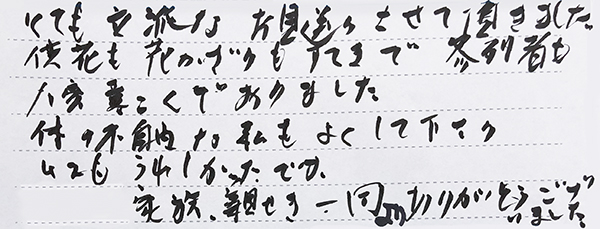 とても立派な お見送りさせて頂きました
供花も 花かざりもすてきで 参列者も
人変喜こんでおりました
体の不自由な私も よくして下さり
とてもうれしかったです。
家族、親せき一同 ありがとうございました